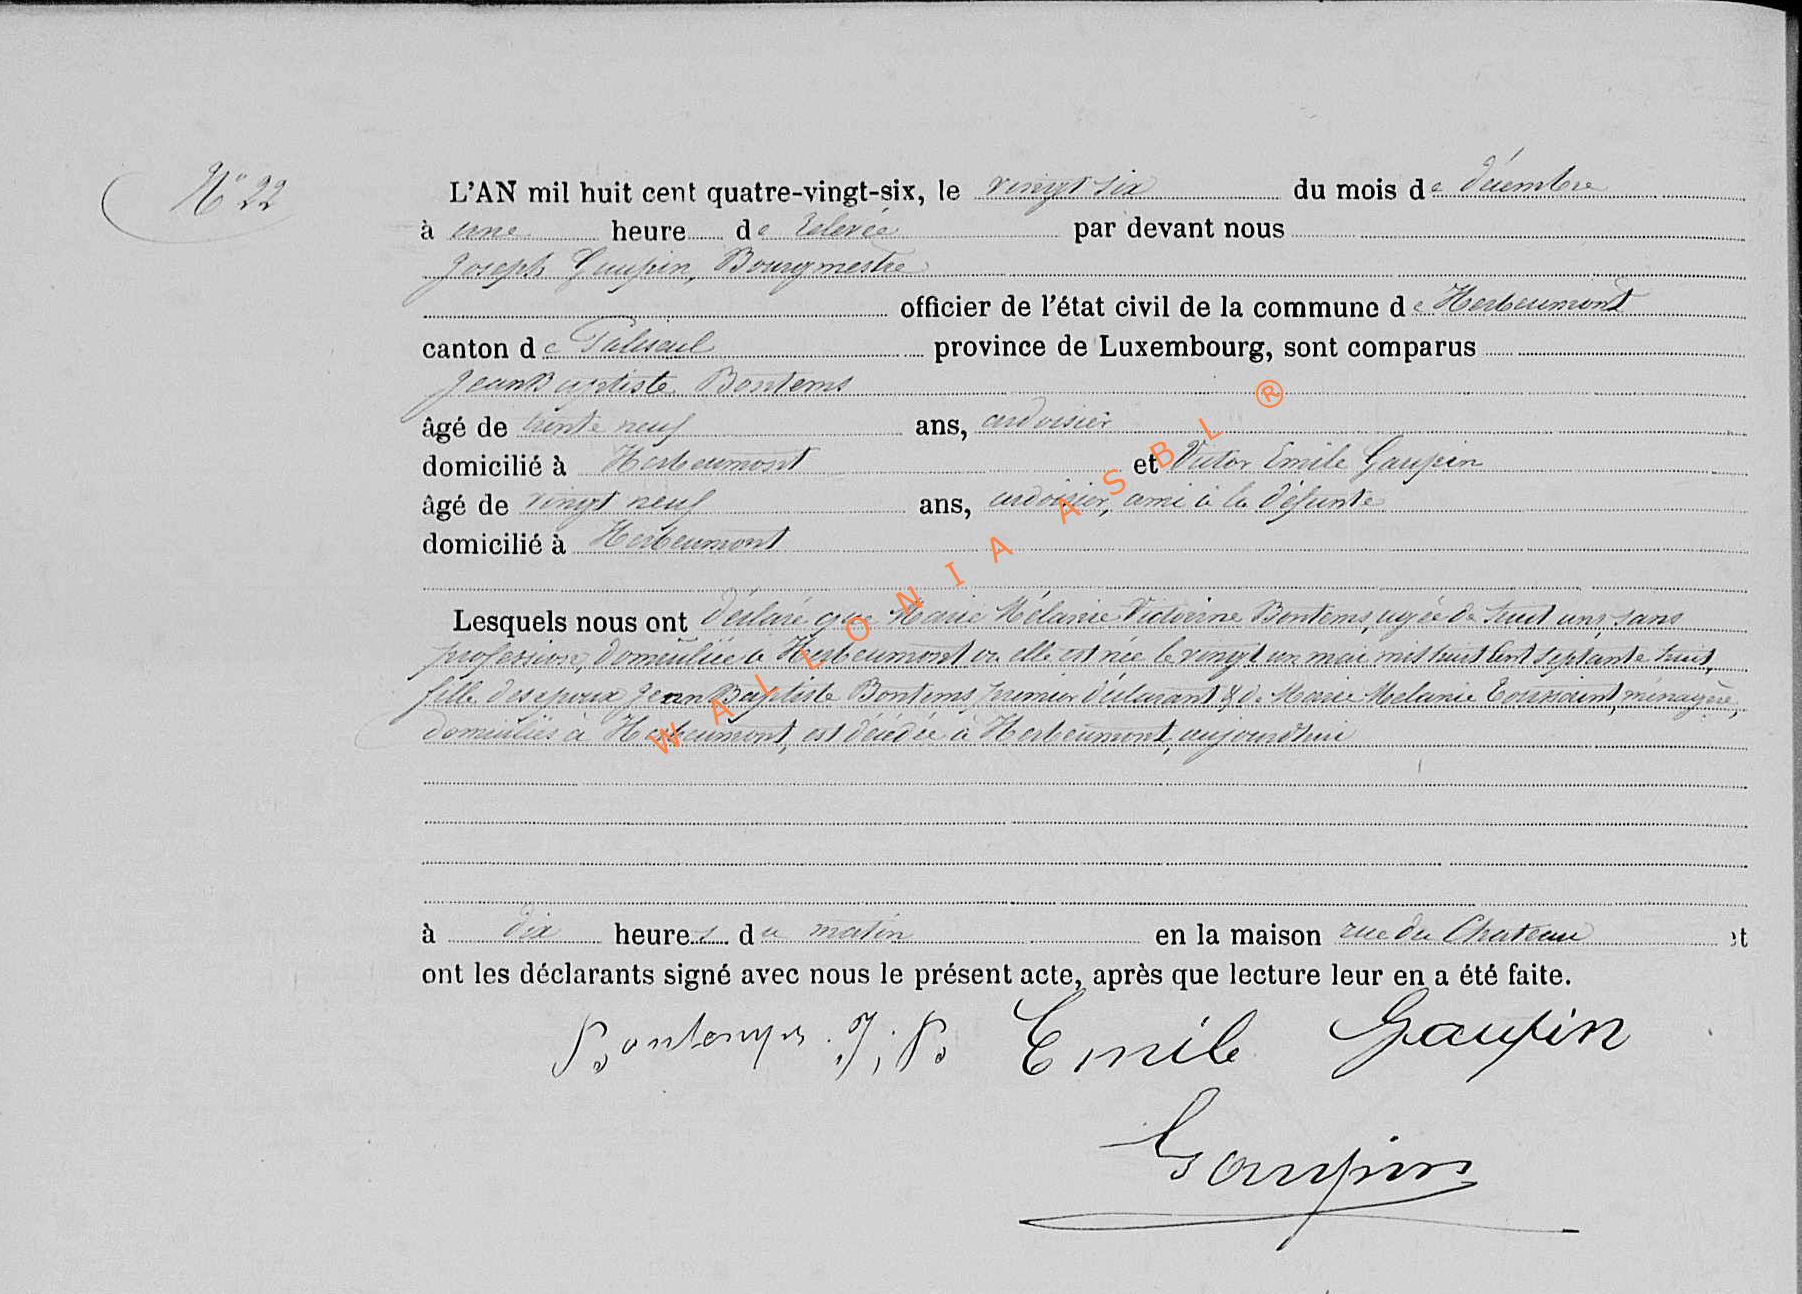 N° 22
L'AN mil huit cent quatre-vingt-six, le vingt six du mois de décembre
à une heure de relevée par devant nous
Joseph Gaupin, Bourgmestre
officier de l'état civil de la commune de Herbeumont
canton de Paliseul province de Luxembourg, sont comparus
Jean Baptiste Bontems
âgé de trente neuf ans, ardoisier
domicilié à Herbeumont et Victor Emile Gaupin
âgé de vingt neuf ans, ardoisier, ami à la défunte
domicilié à Herbeumont
Lesquels nous ont déclaré que Marie Mélanie Victorine Bontems, agée de huit ans, sans
profession, domiciliée à Herbeumont où elle est née le vingt un mai mil huit cent septante huit,
fille des époux Jean Baptiste Bontems premier déclarant & de Marie Mélanie Toussaint, ménagère,
domiciliés à Herbeumont, est décédée à Herbeumont, aujourd'hui
à dix heures du matin en la maison rue du Chateau et
ont les déclarants signé avec nous le présent acte, après que lecture leur en a été faite.
Bontemps. J. B. Emile Gaupin
Gaupin
WALLONIA ASBL ®